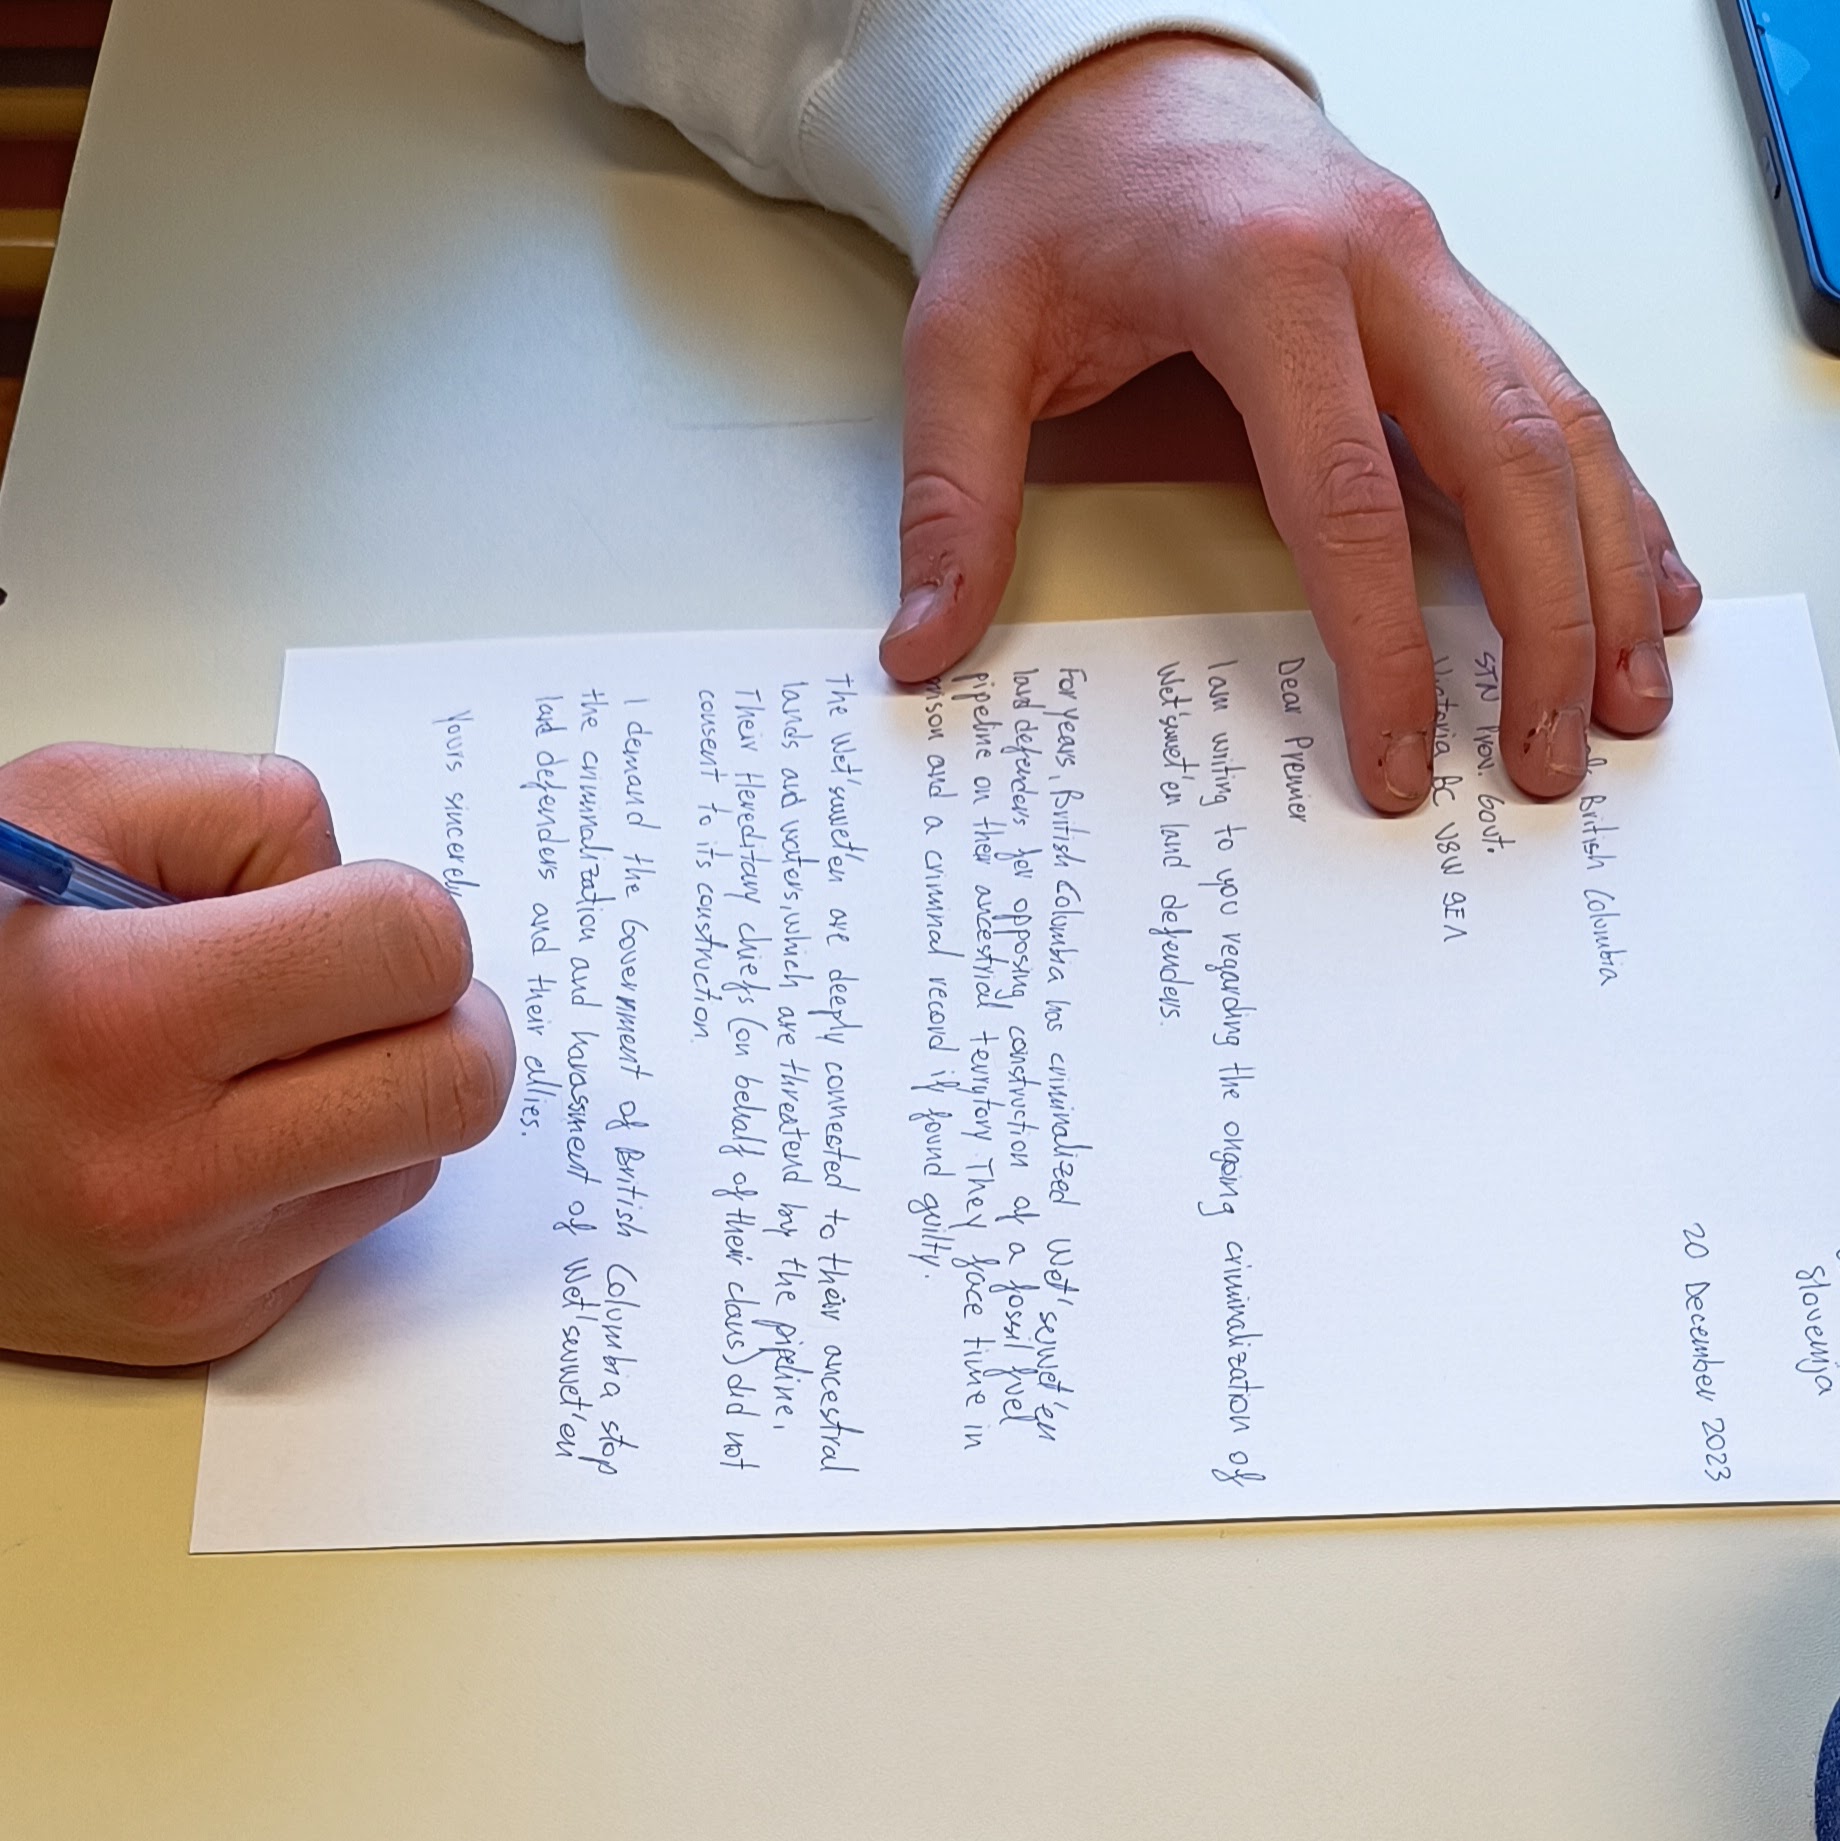 Slovenija
20 December 2023
British Columbia
STN Prov. Govt.
Victoria BC V8W 9E1
Dear Premier
I am writing to you regarding the ongoing criminalization of
Wet'suwet'en land defenders.
For years, British Columbia has criminalized Wet'suwet'en
land defenders for opposing construction of a fossil fuel
pipeline on their ancestrial terrytory. They face time in
prison and a criminal record if found guilty.
The Wet'suwet'en are deeply connected to their ancestral
lands and waters, which are threatend by the pipeline.
Their Hereditary chiefs (on behalf of their clans) did not
consent to its construction.
I demand the Government of British Columbia stop
the criminalization and harassment of Wet'suwet'en
land defenders and their allies.
Yours sincerely